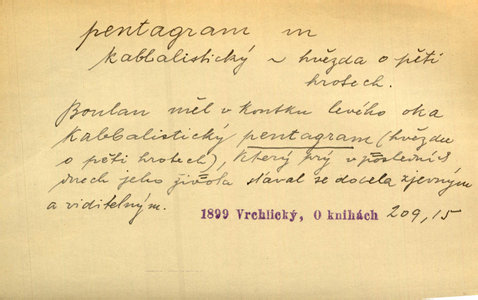 pentagram m
kabbalistický ~ hvězda o pěti
hrotech.
Boulan měl v koutku levého oka
kabbalistický pentagram (hvězdu
o pěti hrotech), který prý v posledních
dnech jeho života stával se docela zjevným
a viditelným.
1899 Vrchlický, O knihách 209,15